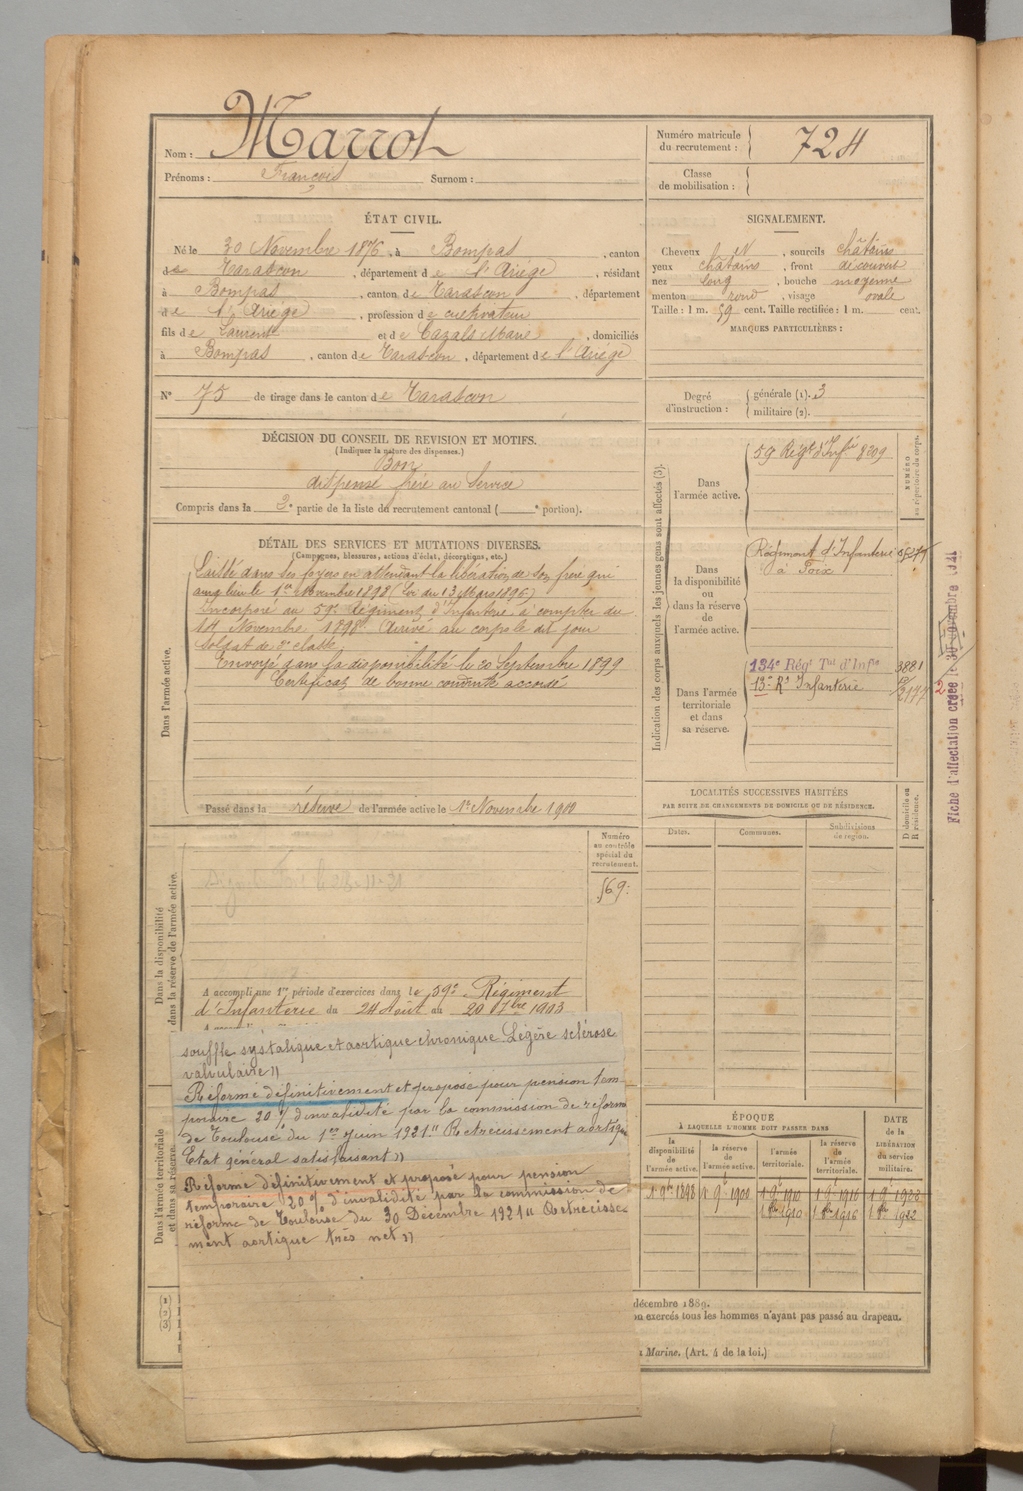 Nom : Marrot
Prénoms : François Surnom :
Numéro matricule du recrutement : 724
Classe de mobilisation :
ÉTAT CIVIL.
Né le 30 Novembre 1876, à Bompas, canton
de Tarascon, département de l'Ariège, résidant
à Bompas, canton de Tarascon, département
de l'Ariège, profession de cultivateur
fils de Laurent et de Cazals Marie, domiciliés
à Bompas, canton de Tarascon, département de l'Ariège
N° 75 de tirage dans le canton de Tarascon
SIGNALEMENT.
Cheveux et, sourcils châtains
yeux châtains, front découvert
nez long, bouche moyenne
menton rond, visage ovale
Taille : 1 m. 59 cent. Taille rectifiée : 1 m. cent.
MARQUES PARTICULIÈRES :
Degré d'instruction : générale (1). 3
militaire (2).
DÉCISION DU CONSEIL DE REVISION ET MOTIFS.
(Indiquer la nature des dispenses.)
Bon
dispensé frère au Service
Compris dans la 2e partie de la liste du recrutement cantonal ( e portion).
DÉTAIL DES SERVICES ET MUTATIONS DIVERSES.
(Campagnes, blessures, actions d'éclat, décorations, etc.)
Dans l'armée active.
Laissé dans ses foyers en attendant la libération de son frère qui
aura lieu le 1er Novembre 1898 (Loi du 13 Mars 1896)
Incorporé au 59e Régiment d'Infanterie à compter du
14 Novembre 1898. Arrivé au corps le dit jour
soldat de 2e classe
Envoyé dans la disponibilité le 20 Septembre 1899
Certificat de bonne conduite accordé
Passé dans la réserve de l'armée active le 1er Novembre 1900
Indication des corps auxquels les jeunes gens sont affectés (3).
NUMÉRO au répertoire du corps.
Dans l'armée active.
59 Régt d'Infie 8209
Dans la disponibilité ou dans la réserve de l'armée active.
Régiment d'Infanterie
à Foix
Dans l'armée territoriale et dans sa réserve.
134e Régt Tal d'Infie 3881
13e Rt Infanterie 2177
Fiche d'affectation créée le 30 novembre 1921
LOCALITÉS SUCCESSIVES HABITÉES
PAR SUITE DE CHANGEMENTS DE DOMICILE OU DE RÉSIDENCE.
Dates. Communes. Subdivisions de région. D domicile ou R résidence.
Dans la disponibilité ou dans la réserve de l'armée active.
Numéro au contrôle spécial du recrutement.
569
A accompli une 1re période d'exercices dans le 59e Régiment
d'Infanterie du 24 Août au 20 7bre 1903
Dans l'armée territoriale et dans sa réserve.
souffle systolique et aortique chronique. Légère sclérose
valvulaire))
Réformé définitivement et proposé pour pension tem-
poraire 20 % d'invalidité par la commission de réforme
de Toulouse du 1er juin 1921 "Rétrécissement aortique
Etat général satisfaisant))
Réformé définitivement et proposé pour pension
temporaire 20 % d'invalidité par la commission de
réforme de Toulouse du 30 Décembre 1921 "Rétrécisse-
ment aortique très net))
ÉPOQUE
À LAQUELLE L'HOMME DOIT PASSER DANS
la disponibilité de l'armée active. la réserve de l'armée active. l'armée territoriale. la réserve de l'armée territoriale.
DATE de la LIBÉRATION du service militaire.
1 9bre 1898 1 9bre 1900 1 9bre 1910 1 9bre 1916 1 9bre 1923
1 8bre 1910 1 8bre 1916 1 8bre 1922
(1)
(2) décembre 1889.
(3) on exercés tous les hommes n'ayant pas passé au drapeau.
Marine. (Art. 4 de la loi.)